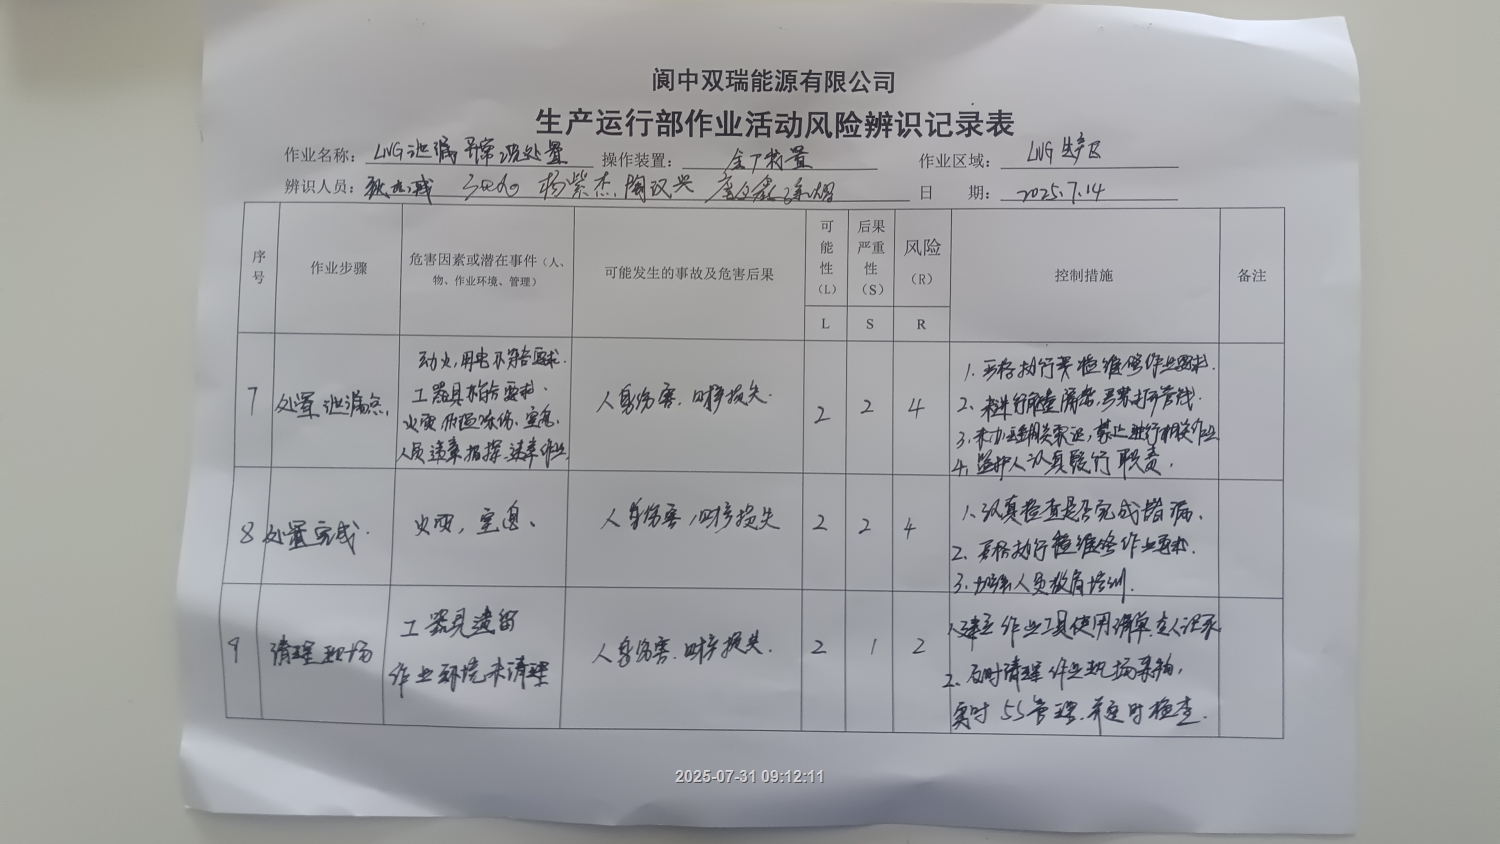 阆中双瑞能源有限公司
生产运行部作业活动风险辨识记录表
作业名称: LNG泄漏异常 处置 操作装置: 全厂装置 作业区域: LNG生产区
辨识人员: 杨紫杰 陶汉兴 日 期: 2025.7.14
序号 作业步骤 危害因素或潜在事件(人、物、作业环境、管理) 可能发生的事故及危害后果 可能性(L) 后果严重性(S) 风险(R) 控制措施 备注
L S R
7 处置泄漏点 动火,用电不符合要求. 人身伤害.财产损失. 2 2 4 1. 严格执行 检维修作业要求.
工器具不符合要求. 2. 未进行 严禁打开管线.
火灾 低温冻伤、窒息. 3. 未办理相关票证,禁止进行相关作业
人员违章指挥.违章作业. 4. 监护人认真履行职责.
8 处置完成. 火灾,窒息、 人身伤害,财产损失 2 2 4 1. 认真检查是否完成堵漏、
2. 严格执行检维修作业要求.
3. 加强人员教育培训.
9 清理现场 工器具遗留 人身伤害.财产损失. 2 1 2 1. 建立作业工具使用清单 记录
作业环境未清理 2. 及时清理作业现场杂物,
实时5S管理. 定时检查.
2025-07-31 09:12:11